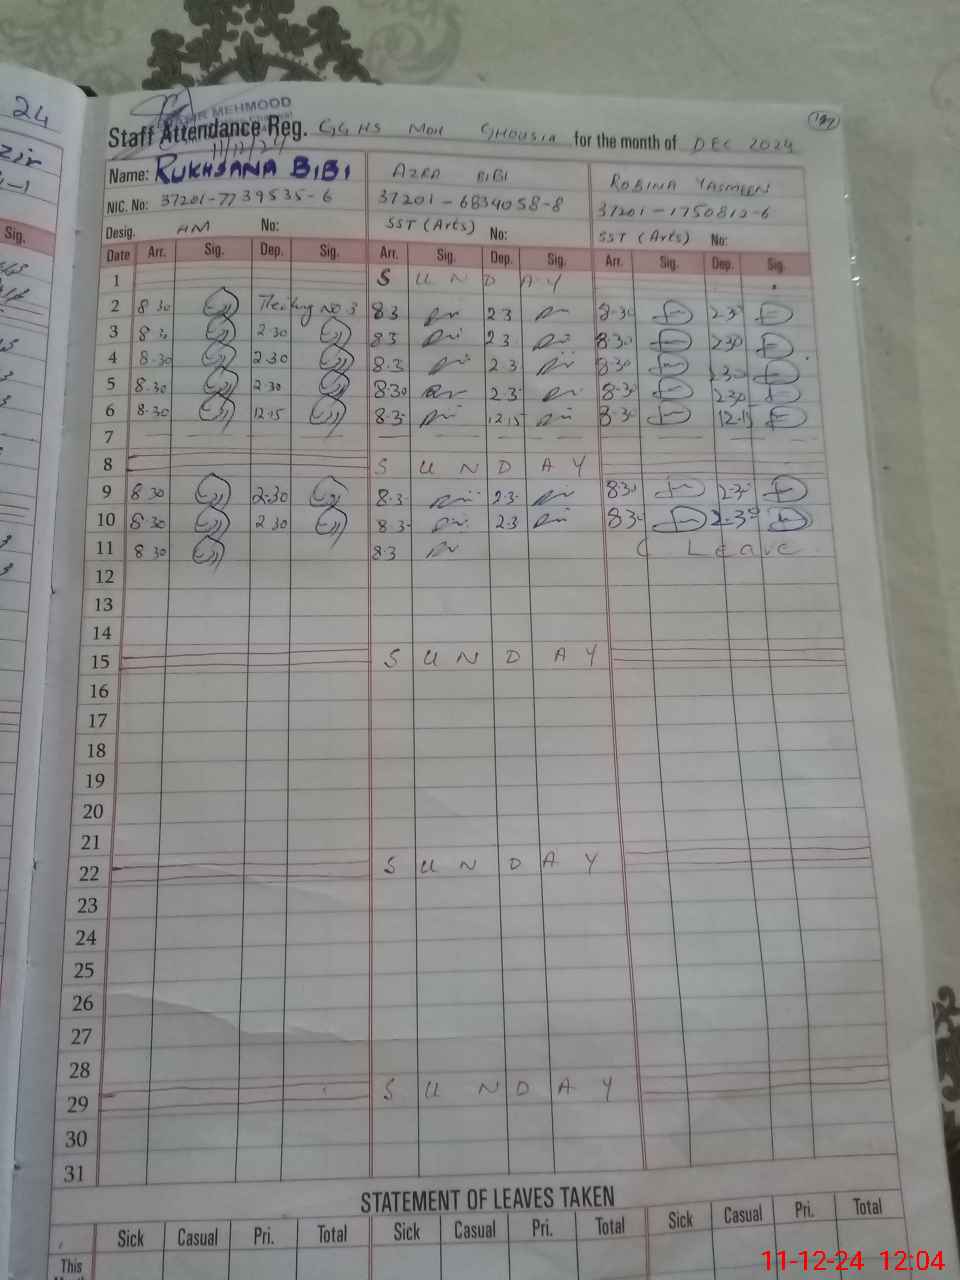 24
MEHMOOD
Staff Attendance Reg. GGHS MOH GHOUSIA for the month of DEC 2024
11/12/24
Name: RUKHSANA BIBI AZRA BIBI ROBINA YASMEEN
NIC. No: 37201-7739535-6 37201-6834058-8 37201-1750812-6
Desig. HM No: SST (Arts) No: SST (Arts) No:
Sig. Date Arr. Sig. Dep. Sig. Arr. Sig. Dep. Sig. Arr. Sig. Dep. Sig.
1 SUNDAY
2 8.30 No 3 8.3 2.3 8.30 2.3
3 8.3 2.30 8.3 2.3 8.30 2.30
4 8.30 2.30 8.3 2.3 8.30 2.30
5 8.30 2.30 8.30 2.3 8.30 2.30
6 8.30 12.15 8.3 12.15 8.3 12.15
7
8 SUNDAY
9 8 30 2.30 8.3 2.3 8.30 2.3
10 8.30 2 30 8.3 2.3 8.3 2.30
11 8 30 8.3 C Leave
12
13
14
15 SUNDAY
16
17
18
19
20
21
22 SUNDAY
23
24
25
26
27
28
29 SUNDAY
30
31
STATEMENT OF LEAVES TAKEN
Sick Casual Pri. Total Sick Casual Pri. Total Sick Casual Pri. Total
This
11-12-24 12:04